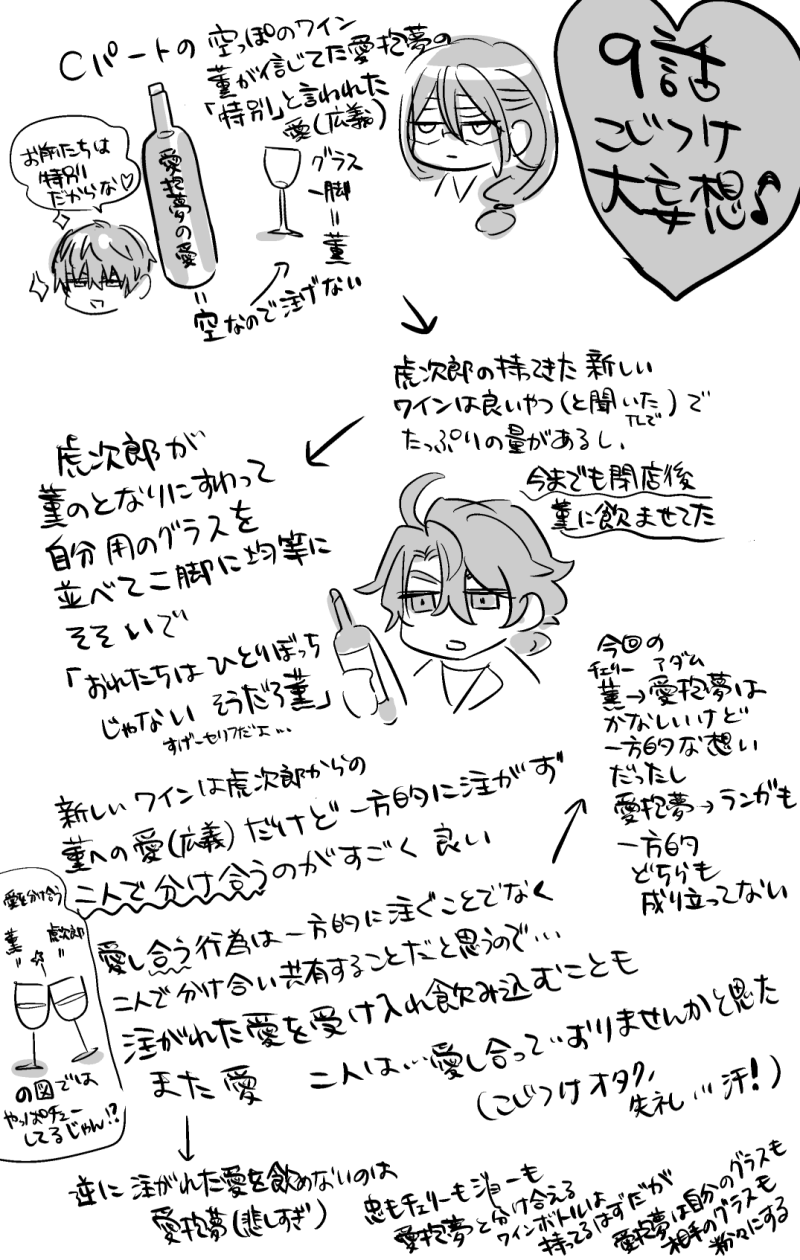 9話
こじつけ
大妄想♪
Cパートの 空っぽのワイン
薫が信じてた愛抱夢の
「特別」と言われた
愛(広義)
お前たちは
特別
だからな♡
愛抱夢の愛
グラス
一脚
=
薫
=
空なので注げない
虎次郎の持ってきた新しい
ワインは良いやつ(と聞いた)で
TLで
たっぷりの量があるし、
今までも閉店後
薫に飲ませてた
虎次郎が
薫のとなりにすわって
自分用のグラスを
並べて二脚に均等に
そそいで
「おれたちは ひとりぼっち
じゃない そうだろ薫」
すげーセリフだよ…
今回の
チェリー アダム
薫→愛抱夢は
かなしいけど
一方的な想い
だったし
愛抱夢→ランガも
一方的
どちらも
成り立ってない
新しいワインは虎次郎からの
薫への愛(広義)だけど 一方的に注がず
二人で分け合うのがすごく良い
愛し合う行為は一方的に注ぐことでなく
二人で分け合い共有することだと思うので…
注がれた愛を受け入れ飲み込むことも
また愛
二人は…愛し合って…おりませんかと思た
(こじつけオタク、
失礼…汗!)
愛を分け合う
薫 虎次郎
〃 〃
の図では
やっぱチュー
してるじゃん!?
逆に 注がれた愛を飲めないのは
愛抱夢(悲しすぎ)
忠もチェリーもジョーも
愛抱夢と分け合える
ワインボトルは
持ってるはずだが
愛抱夢は自分のグラスも
相手のグラスも
粉々にする